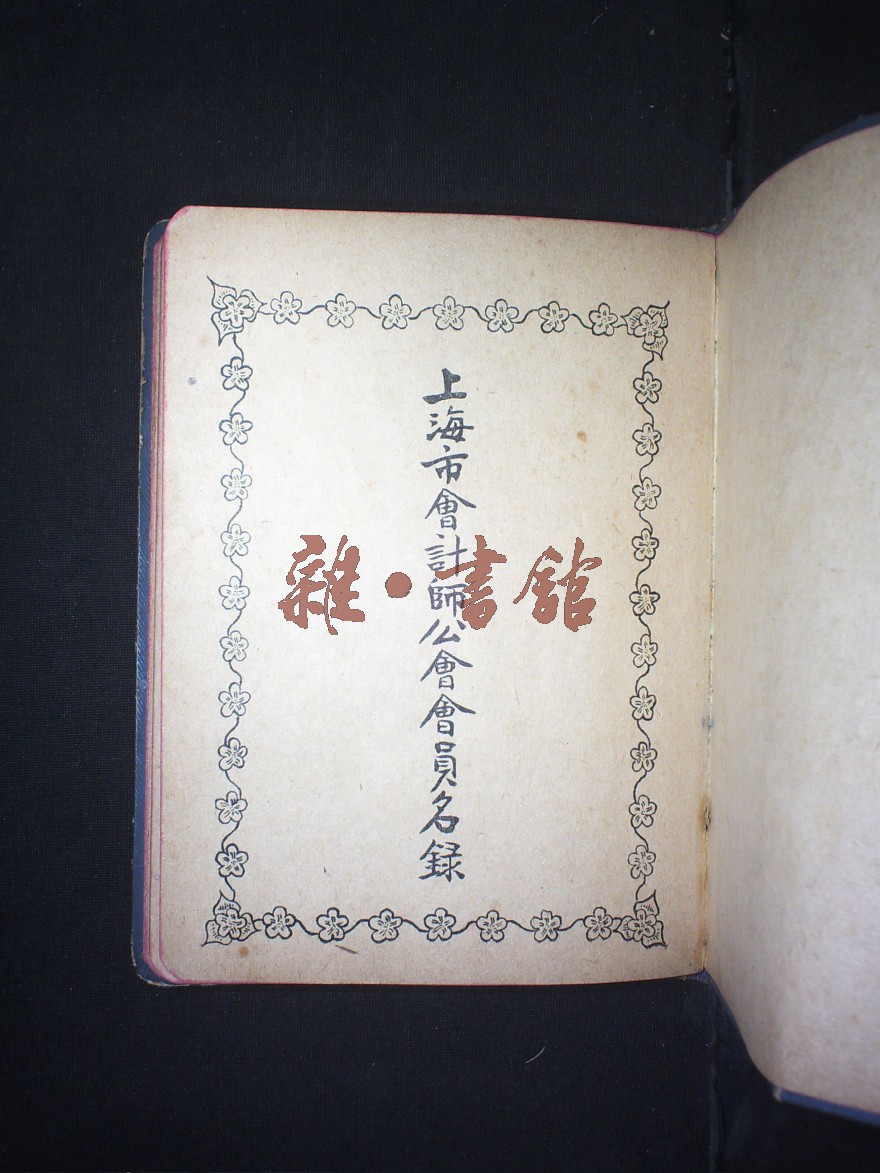 上海市會計師公會會員名錄
雜·書館